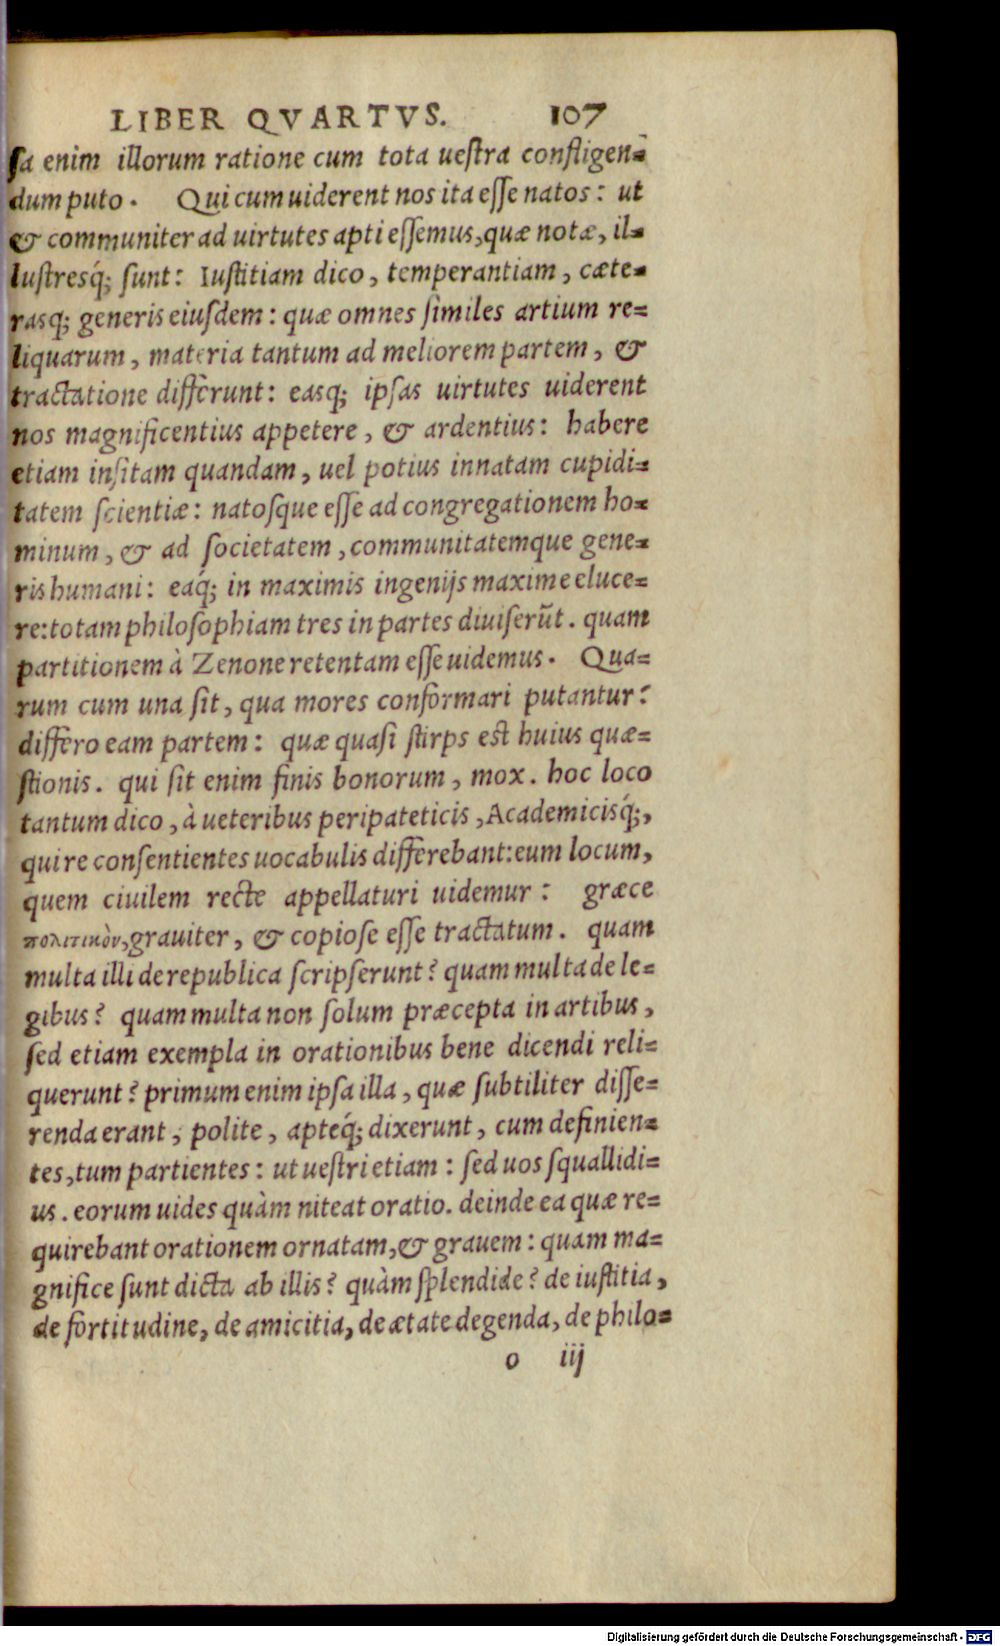 LIBER QVARTVS. 107
sa enim illorum ratione cum tota uestra confligen-
dum puto. Qui cum uiderent nos ita esse natos: ut
& communiter ad uirtutes apti essemus, quæ notæ, il-
lustresq́; sunt: Iustitiam dico, temperantiam, cæte-
rasq; generis eiusdem: quæ omnes similes artium re-
liquarum, materia tantum ad meliorem partem, &
tractatione differunt: easq; ipsas uirtutes uiderent
nos magnificentius appetere, & ardentius: habere
etiam insitam quandam, uel potius innatam cupidi-
tatem scientiæ: natosque esse ad congregationem ho-
minum, & ad societatem, communitatemque gene-
ris humani: eaq́; in maximis ingenijs maxime eluce-
re: totam philosophiam tres in partes diuiserũt. quam
partitionem à Zenone retentam esse uidemus. Qua-
rum cum una sit, qua mores conformari putantur:
differo eam partem: quæ quasi stirps est huius quæ-
stionis. qui sit enim finis bonorum, mox. hoc loco
tantum dico, à ueteribus peripateticis, Academicisq́;,
qui re consentientes uocabulis differebant: eum locum,
quem ciuilem recte appellaturi uidemur: græce
πολιτικὸν, grauiter, & copiose esse tractatum. quam
multa illi de republica scripserunt? quam multa de le-
gibus? quam multa non solum præcepta in artibus,
sed etiam exempla in orationibus bene dicendi reli-
querunt? primum enim ipsa illa, quæ subtiliter disse-
renda erant, polite, apteq́; dixerunt, cum definien-
tes, tum partientes: ut uestri etiam: sed uos squallidi-
us. eorum uides quàm niteat oratio. deinde ea quæ re-
quirebant orationem ornatam, & grauem: quam ma-
gnifice sunt dicta ab illis? quàm splendide? de iustitia,
de fortitudine, de amicitia, de ætate degenda, de philo-
o iij
Digitalisierung gefördert durch die Deutsche Forschungsgemeinschaft - DFG